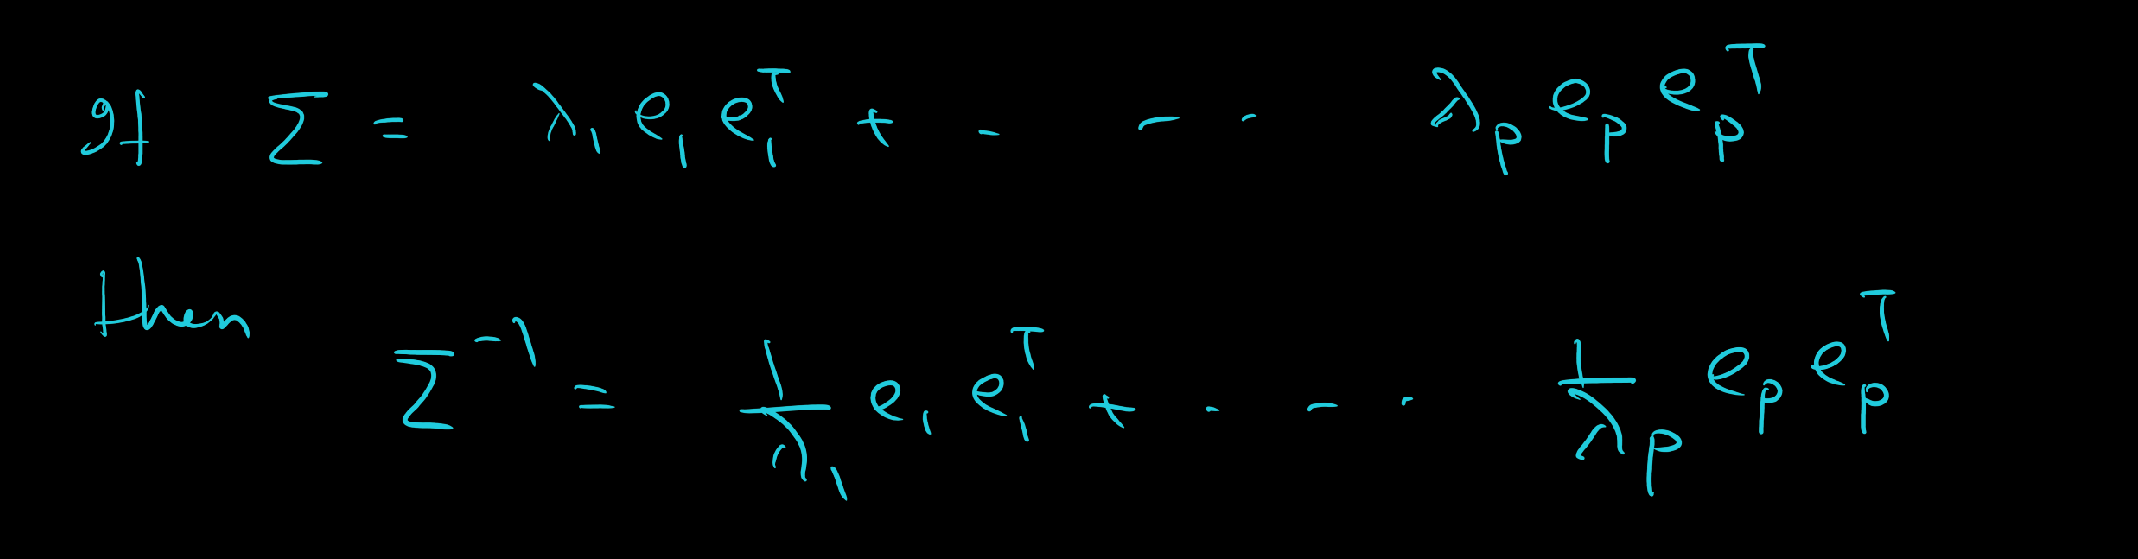 If Σ = λ₁ e₁ e₁ᵀ + - - - - λₚ eₚ eₚᵀ
then
Σ⁻¹ = 1/λ₁ e₁ e₁ᵀ + - - - 1/λₚ eₚ eₚᵀ